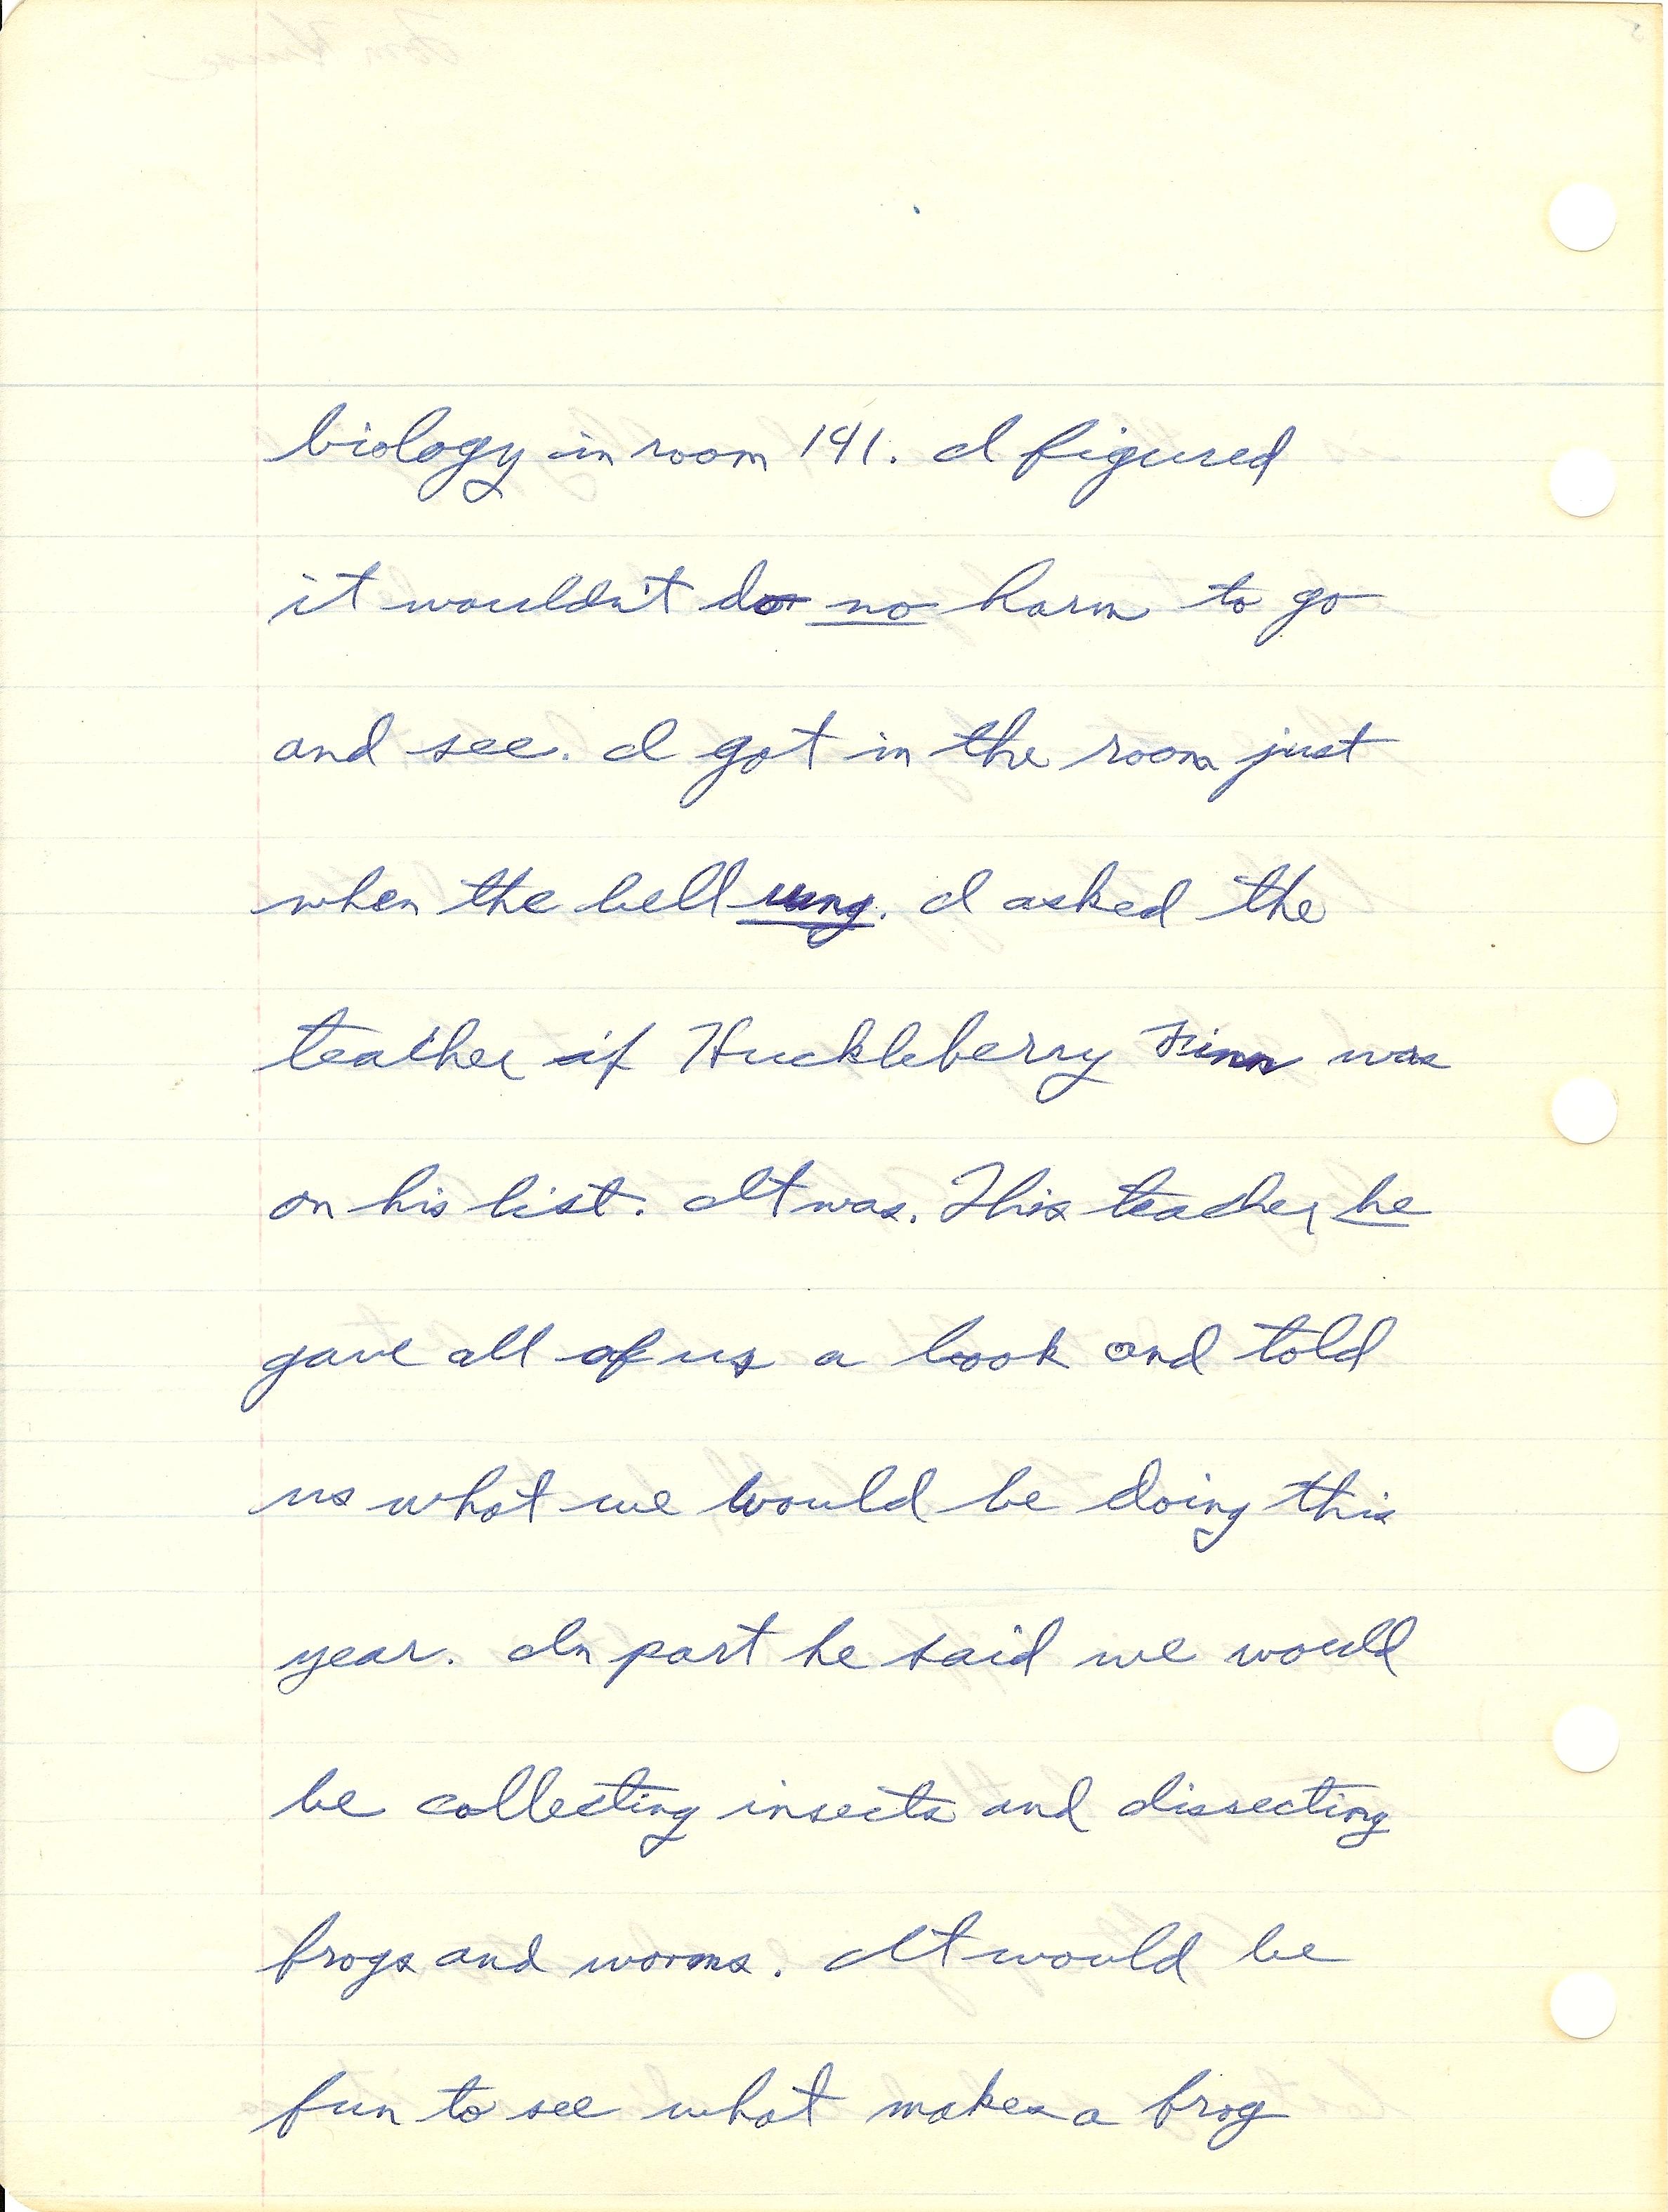 biology in room 141. I figured
it wouldn't do no harm to go
and see. I got in the room just
when the bell rung. I asked the
teacher if Huckleberry Finn was
on his list. It was. This teacher he
gave all of us a look and told
us what we would be doing this
year. In part he said we would
be collecting insects and dissecting
frogs and worms. It would be
fun to see what makes a frog